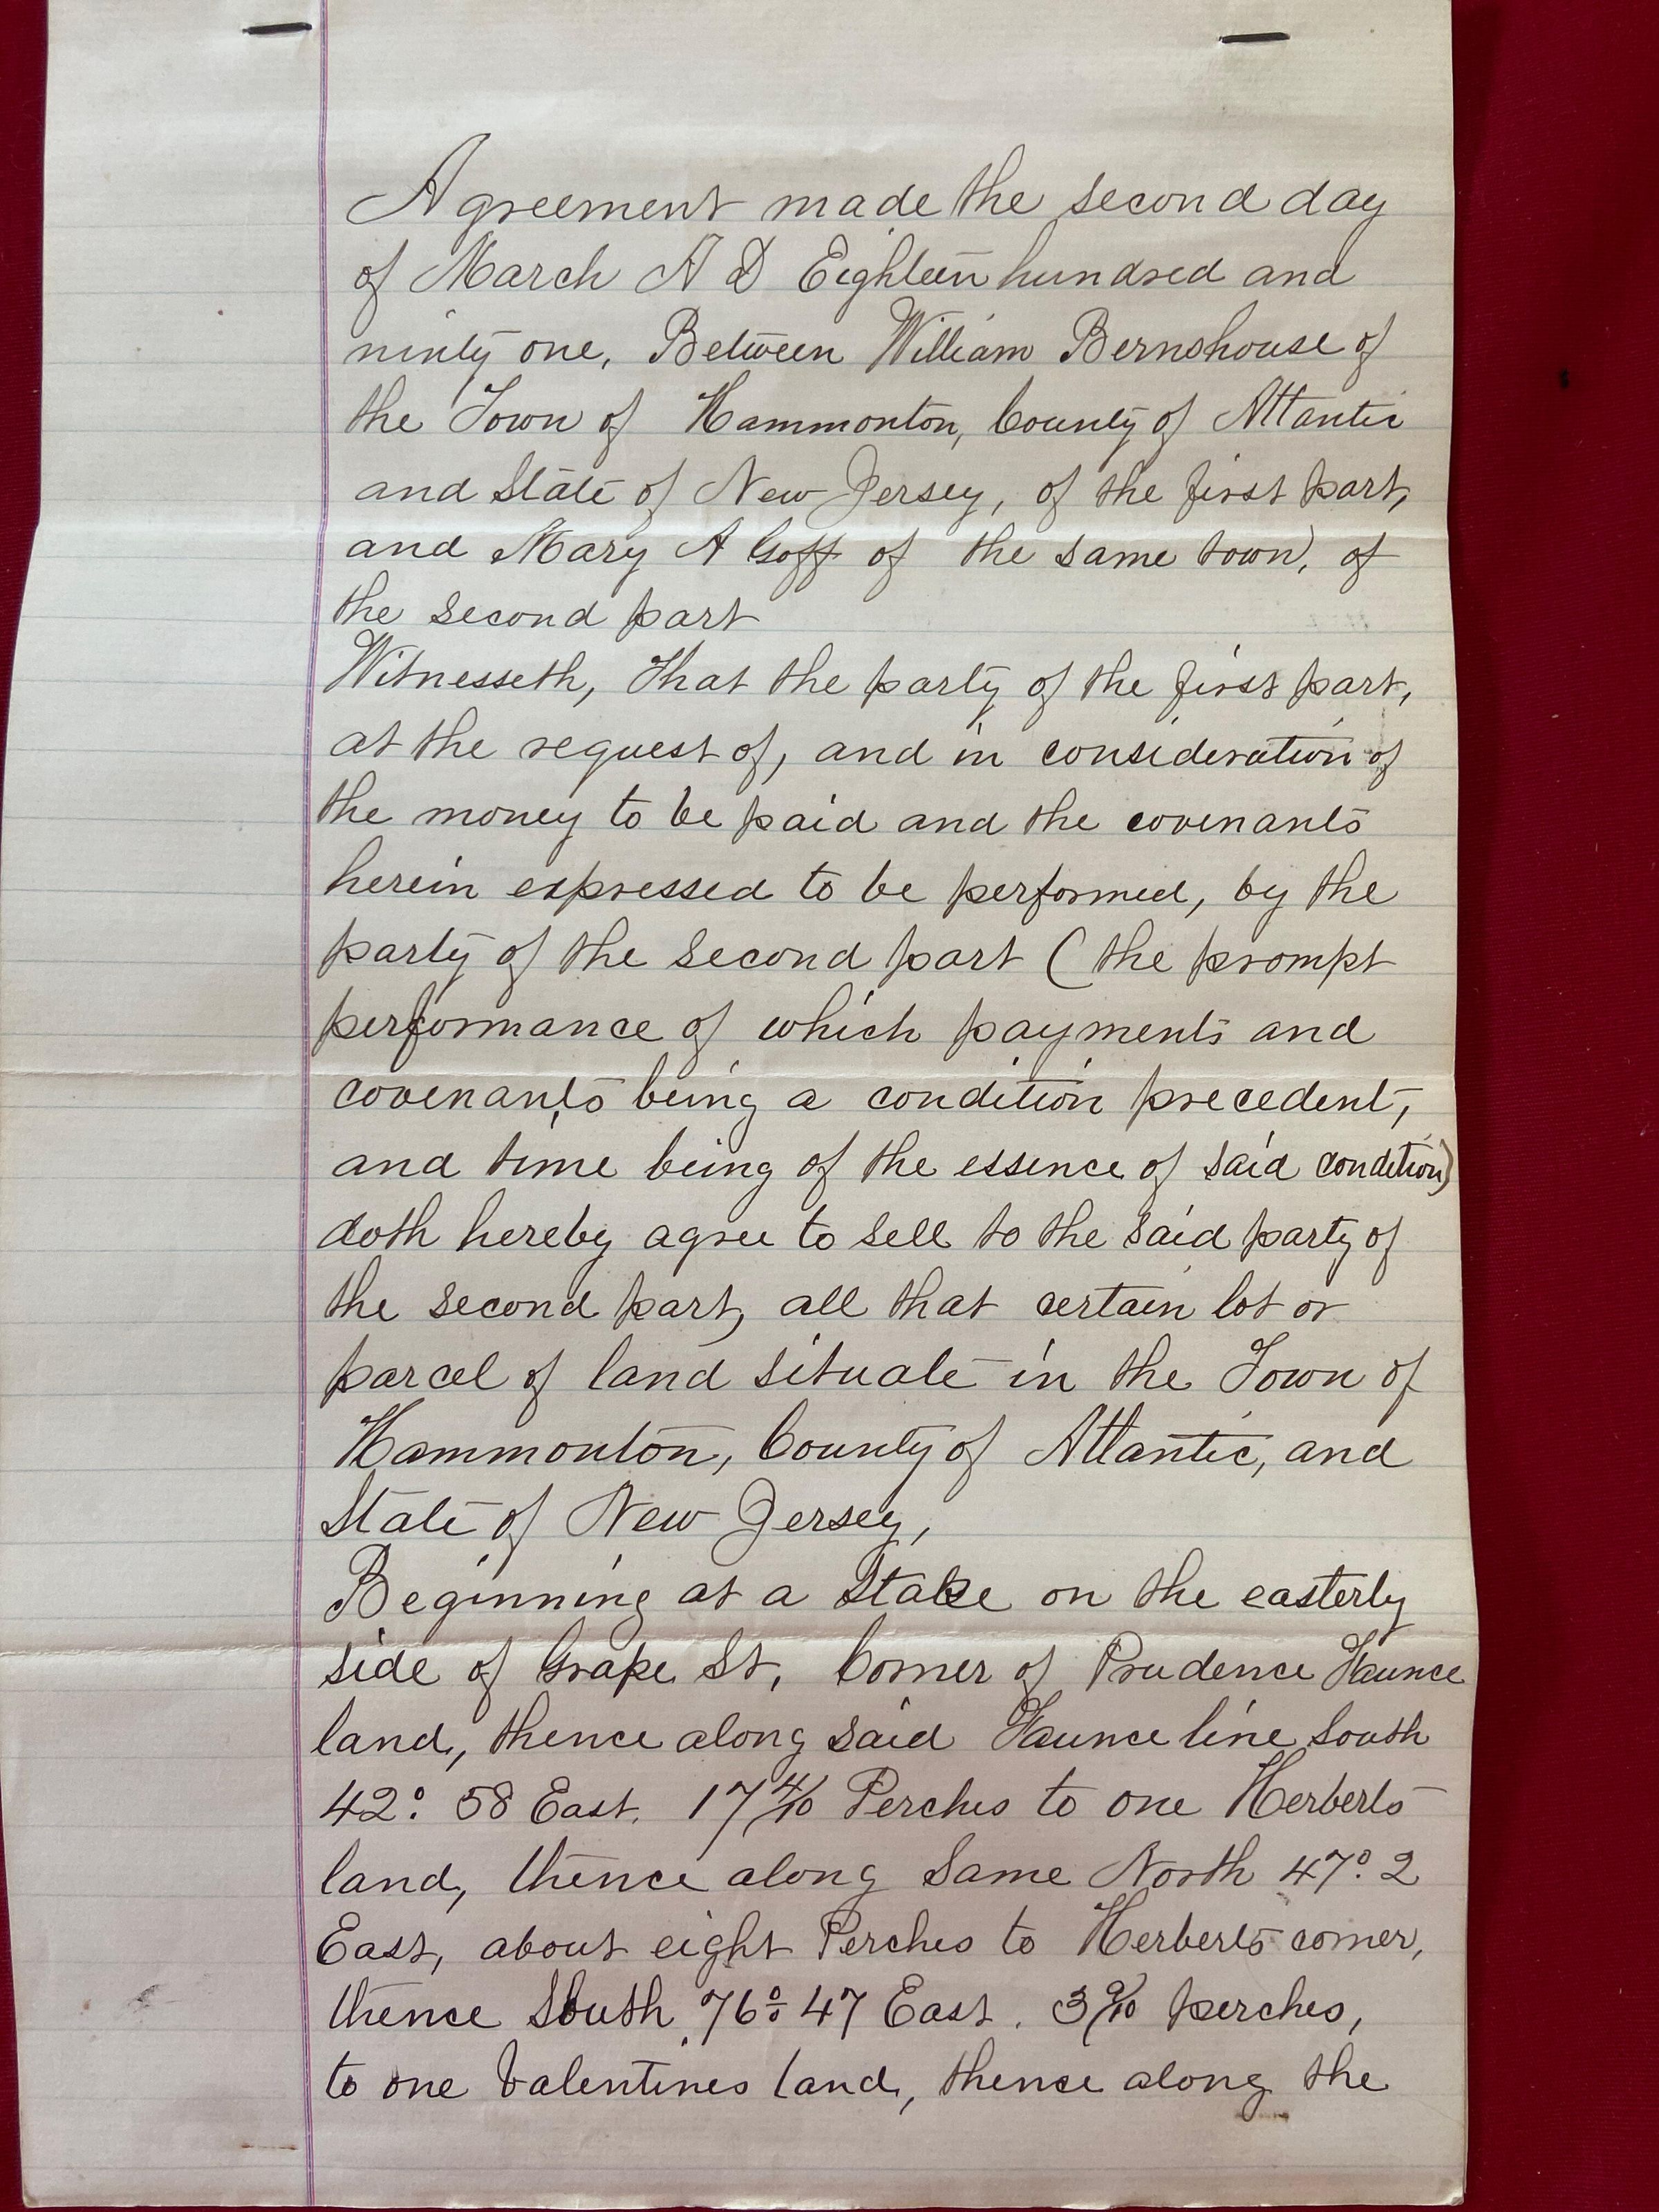 Agreement made the second day
of March A D Eighteen hundred and
ninty one, Between William Bernshouse of
the Town of Hammonton, County of Atlantic
and State of New Jersey, of the first part,
and Mary A Goff of the same town, of
the second part
Witnesseth, That the party of the first part,
at the request of, and in consideration of
the money to be paid and the covenants
herein expressed to be performed, by the
party of the second part (the prompt
performance of which payments and
covenants being a condition precedent,
and time being of the essence of said condition)
doth hereby agree to sell to the said party of
the second part, all that certain lot or
parcel of land situate in the Town of
Hammonton, County of Atlantic, and
State of New Jersey,
Beginning at a Stake on the easterly
side of Grape St, Corner of Prudence Faunce
land, thence along said Faunce line South
42° 58 East. 17 4/10 Perches to one Herberts
land, thence along same North 47° 2
East, about eight Perches to Herberts corner,
thence South 76° 47 East. 3 9/10 perches,
to one Valentines land, thence along the